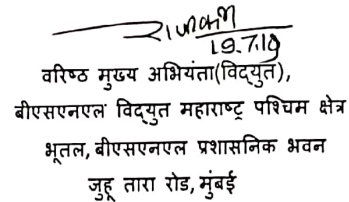 19.7.19
वरिष्ठ मुख्य अभियंता(विद्युत),
बीएसएनएल विद्युत महाराष्ट्र पश्चिम क्षेत्र
भूतल, बीएसएनएल प्रशासनिक भवन
जुहू तारा रोड, मुंबई